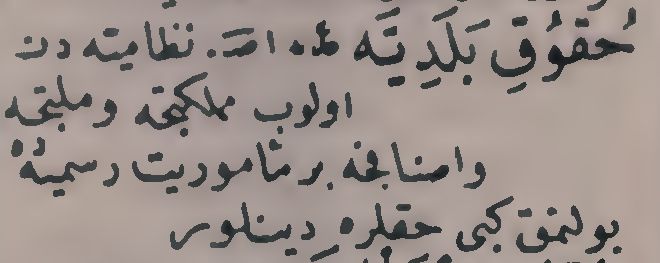 حُقوُقِ بَلَدِيَّه نظاميته دن
اولوب مملكتجه وملتجه
واصنافجه بر مأموريت رسميه ده
بولنمق كبى حقلره دينلور